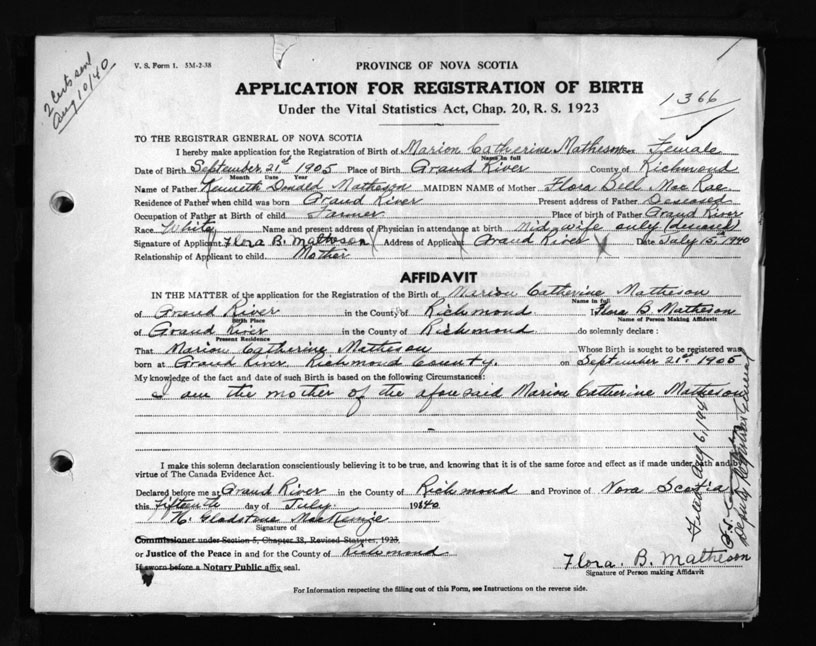 2 Certs sent
Aug 10/40
V. S. Form 1. 5M-2-38
PROVINCE OF NOVA SCOTIA
APPLICATION FOR REGISTRATION OF BIRTH
Under the Vital Statistics Act, Chap. 20, R. S. 1923
1366
TO THE REGISTRAR GENERAL OF NOVA SCOTIA
I hereby make application for the Registration of Birth of Marion Catherine Matheson Female
Name in full
Date of Birth September 21st 1905 Place of Birth Grand River County of Richmond
Month Date Year
Name of Father Kenneth Donald Matheson MAIDEN NAME of Mother Flora Bell MacRae
Residence of Father when child was born Grand River Present address of Father Deceased
Occupation of Father at Birth of child Farmer Place of birth of Father Grand River
Race White Name and present address of Physician in attendance at birth Mid-wife only (deceased)
Signature of Applicant Flora B. Matheson Address of Applicant Grand River Date July 15th 1940
Relationship of Applicant to child Mother
AFFIDAVIT
IN THE MATTER of the application for the Registration of the Birth of Marion Catherine Matheson
Name in full
of Grand River in the County of Richmond I Flora B. Matheson
Birth Place Name of Person Making Affidavit
of Grand River in the County of Richmond do solemnly declare :
Present Residence
That Marion Catherine Matheson Whose Birth is sought to be registered was
born at Grand River, Richmond County. on September 21st 1905
My knowledge of the fact and date of such Birth is based on the following Circumstances:
I am the mother of the aforesaid Marion Catherine Matheson
I make this solemn declaration conscientiously believing it to be true, and knowing that it is of the same force and effect as if made under oath and by
virtue of The Canada Evidence Act.
Declared before me at Grand River in the County of Richmond and Province of Nova Scotia
this fifteenth day of July 1940
H. Gladstone MacKenzie
Signature of
Commissioner under Section 5, Chapter 38, Revised Statutes, 1923
or Justice of the Peace in and for the County of Richmond
If sworn before a Notary Public affix seal.
Flora. B. Matheson
Signature of Person making Affidavit
For Information respecting the filling out of this Form, see Instructions on the reverse side.
Filed Aug 6, 1940
Deputy Registrar General